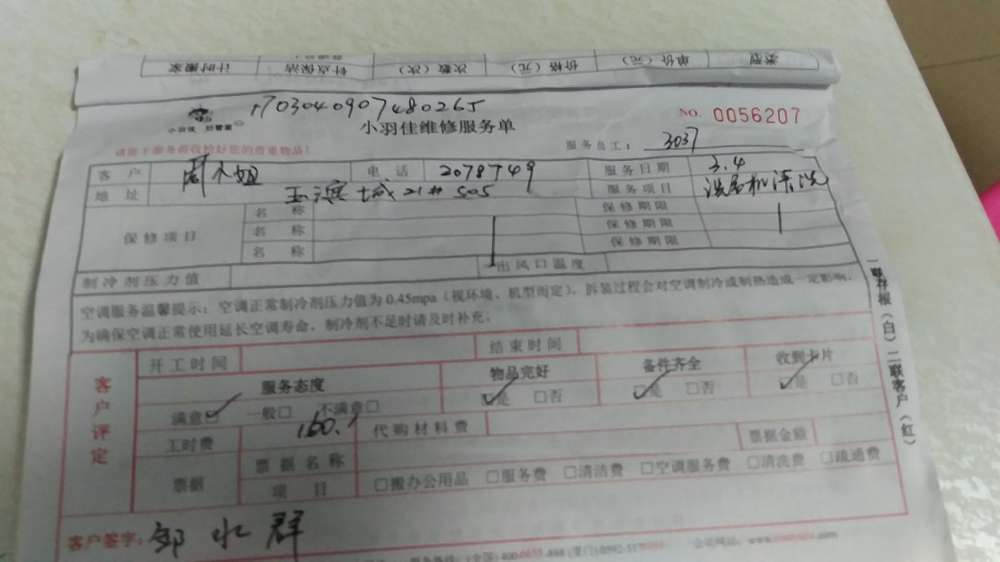 类型 单价(元) 价格(元) 次数(次) 钟点保洁 计时搬家
1703040907480265
小羽佳 好管家
小羽佳维修服务单
NO. 0056207
请您于服务前收检好您的贵重物品!
服务员工: 3037
客户 周小姐 电话 2078749 服务日期 3.4
地址 21# 505 服务项目 洗衣机深洗
保修项目
名称 保修期限
名称 保修期限
名称 保修期限
制冷剂压力值 出风口温度
空调服务温馨提示:空调正常制冷剂压力值为0.45mpa(视环境、机型而定),拆装过程会对空调制冷或制热造成一定影响,
为确保空调正常使用延长空调寿命,制冷剂不足时请及时补充。
一联存根(白)二联客户(红)
客户评定
开工时间 结束时间
服务态度 物品完好 备件齐全 收到卡片
满意☑ 一般□ 不满意□ ☑是 □否 ☑是 □否 ☑是 □否
工时费 160.- 代购材料费
票据 票据名称 票据金额
项目 □搬办公用品 □服务费 □清洁费 □空调服务费 □清洗费 □疏通费
客户签字: 邹水群